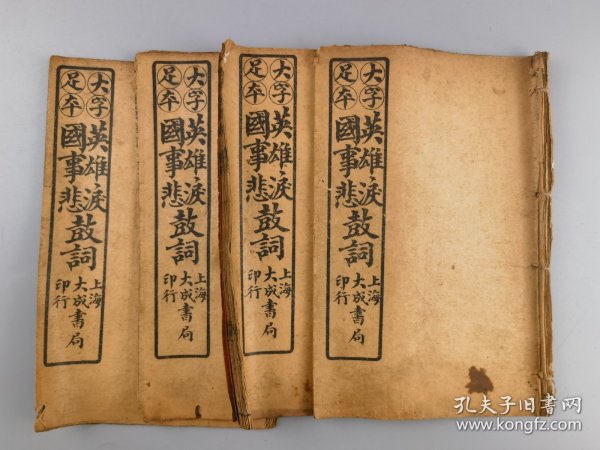 大字
足本
英雄淚
國事悲
鼓詞
上海
大成書局
印行
大字
足本
英雄淚
國事悲
鼓詞
上海
大成書局
印行
大字
足本
英雄淚
國事悲
鼓詞
上海
大成書局
印行
大字
足本
英雄淚
國事悲
鼓詞
上海
大成書局
印行
孔夫子旧书网
www.kongfz.com